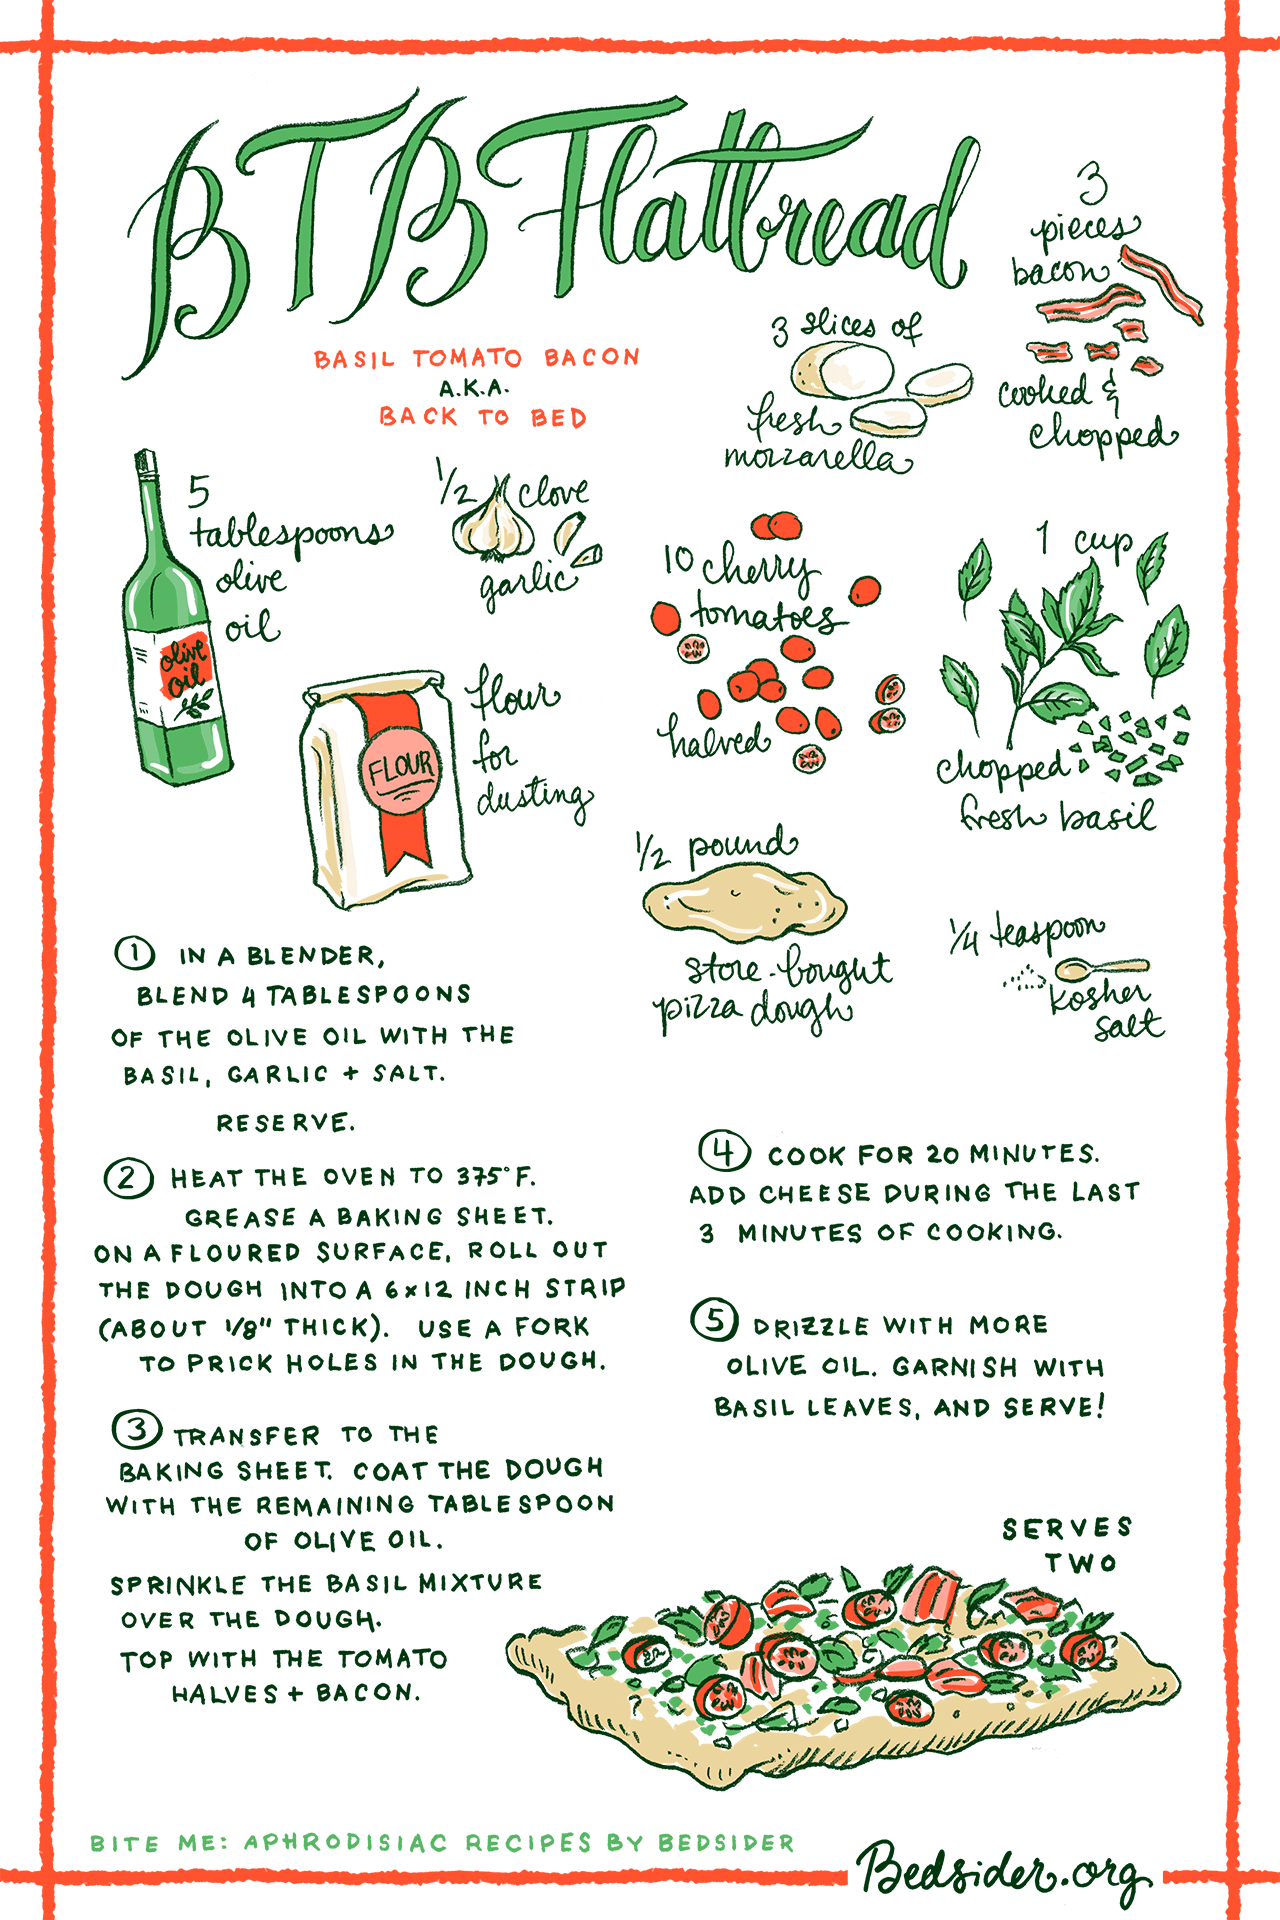 BTB Flatbread
BASIL TOMATO BACON
A.K.A.
BACK TO BED
3
pieces
bacon
cooked &
chopped
3 slices of
fresh
mozzarella
5
tablespoons
olive
oil
olive
oil
1/2 clove
garlic
10 cherry
tomatoes
halved
1 cup
chopped
fresh basil
flour
for
dusting
FLOUR
1/2 pound
store-bought
pizza dough
1/4 teaspoon
kosher
salt
1 IN A BLENDER,
BLEND 4 TABLESPOONS
OF THE OLIVE OIL WITH THE
BASIL, GARLIC + SALT.
RESERVE.
2 HEAT THE OVEN TO 375° F.
GREASE A BAKING SHEET.
ON A FLOURED SURFACE, ROLL OUT
THE DOUGH INTO A 6x12 INCH STRIP
(ABOUT 1/8" THICK). USE A FORK
TO PRICK HOLES IN THE DOUGH.
3 TRANSFER TO THE
BAKING SHEET. COAT THE DOUGH
WITH THE REMAINING TABLESPOON
OF OLIVE OIL.
SPRINKLE THE BASIL MIXTURE
OVER THE DOUGH.
TOP WITH THE TOMATO
HALVES + BACON.
4 COOK FOR 20 MINUTES.
ADD CHEESE DURING THE LAST
3 MINUTES OF COOKING.
5 DRIZZLE WITH MORE
OLIVE OIL. GARNISH WITH
BASIL LEAVES, AND SERVE!
SERVES
TWO
BITE ME: APHRODISIAC RECIPES BY BEDSIDER
Bedsider.org